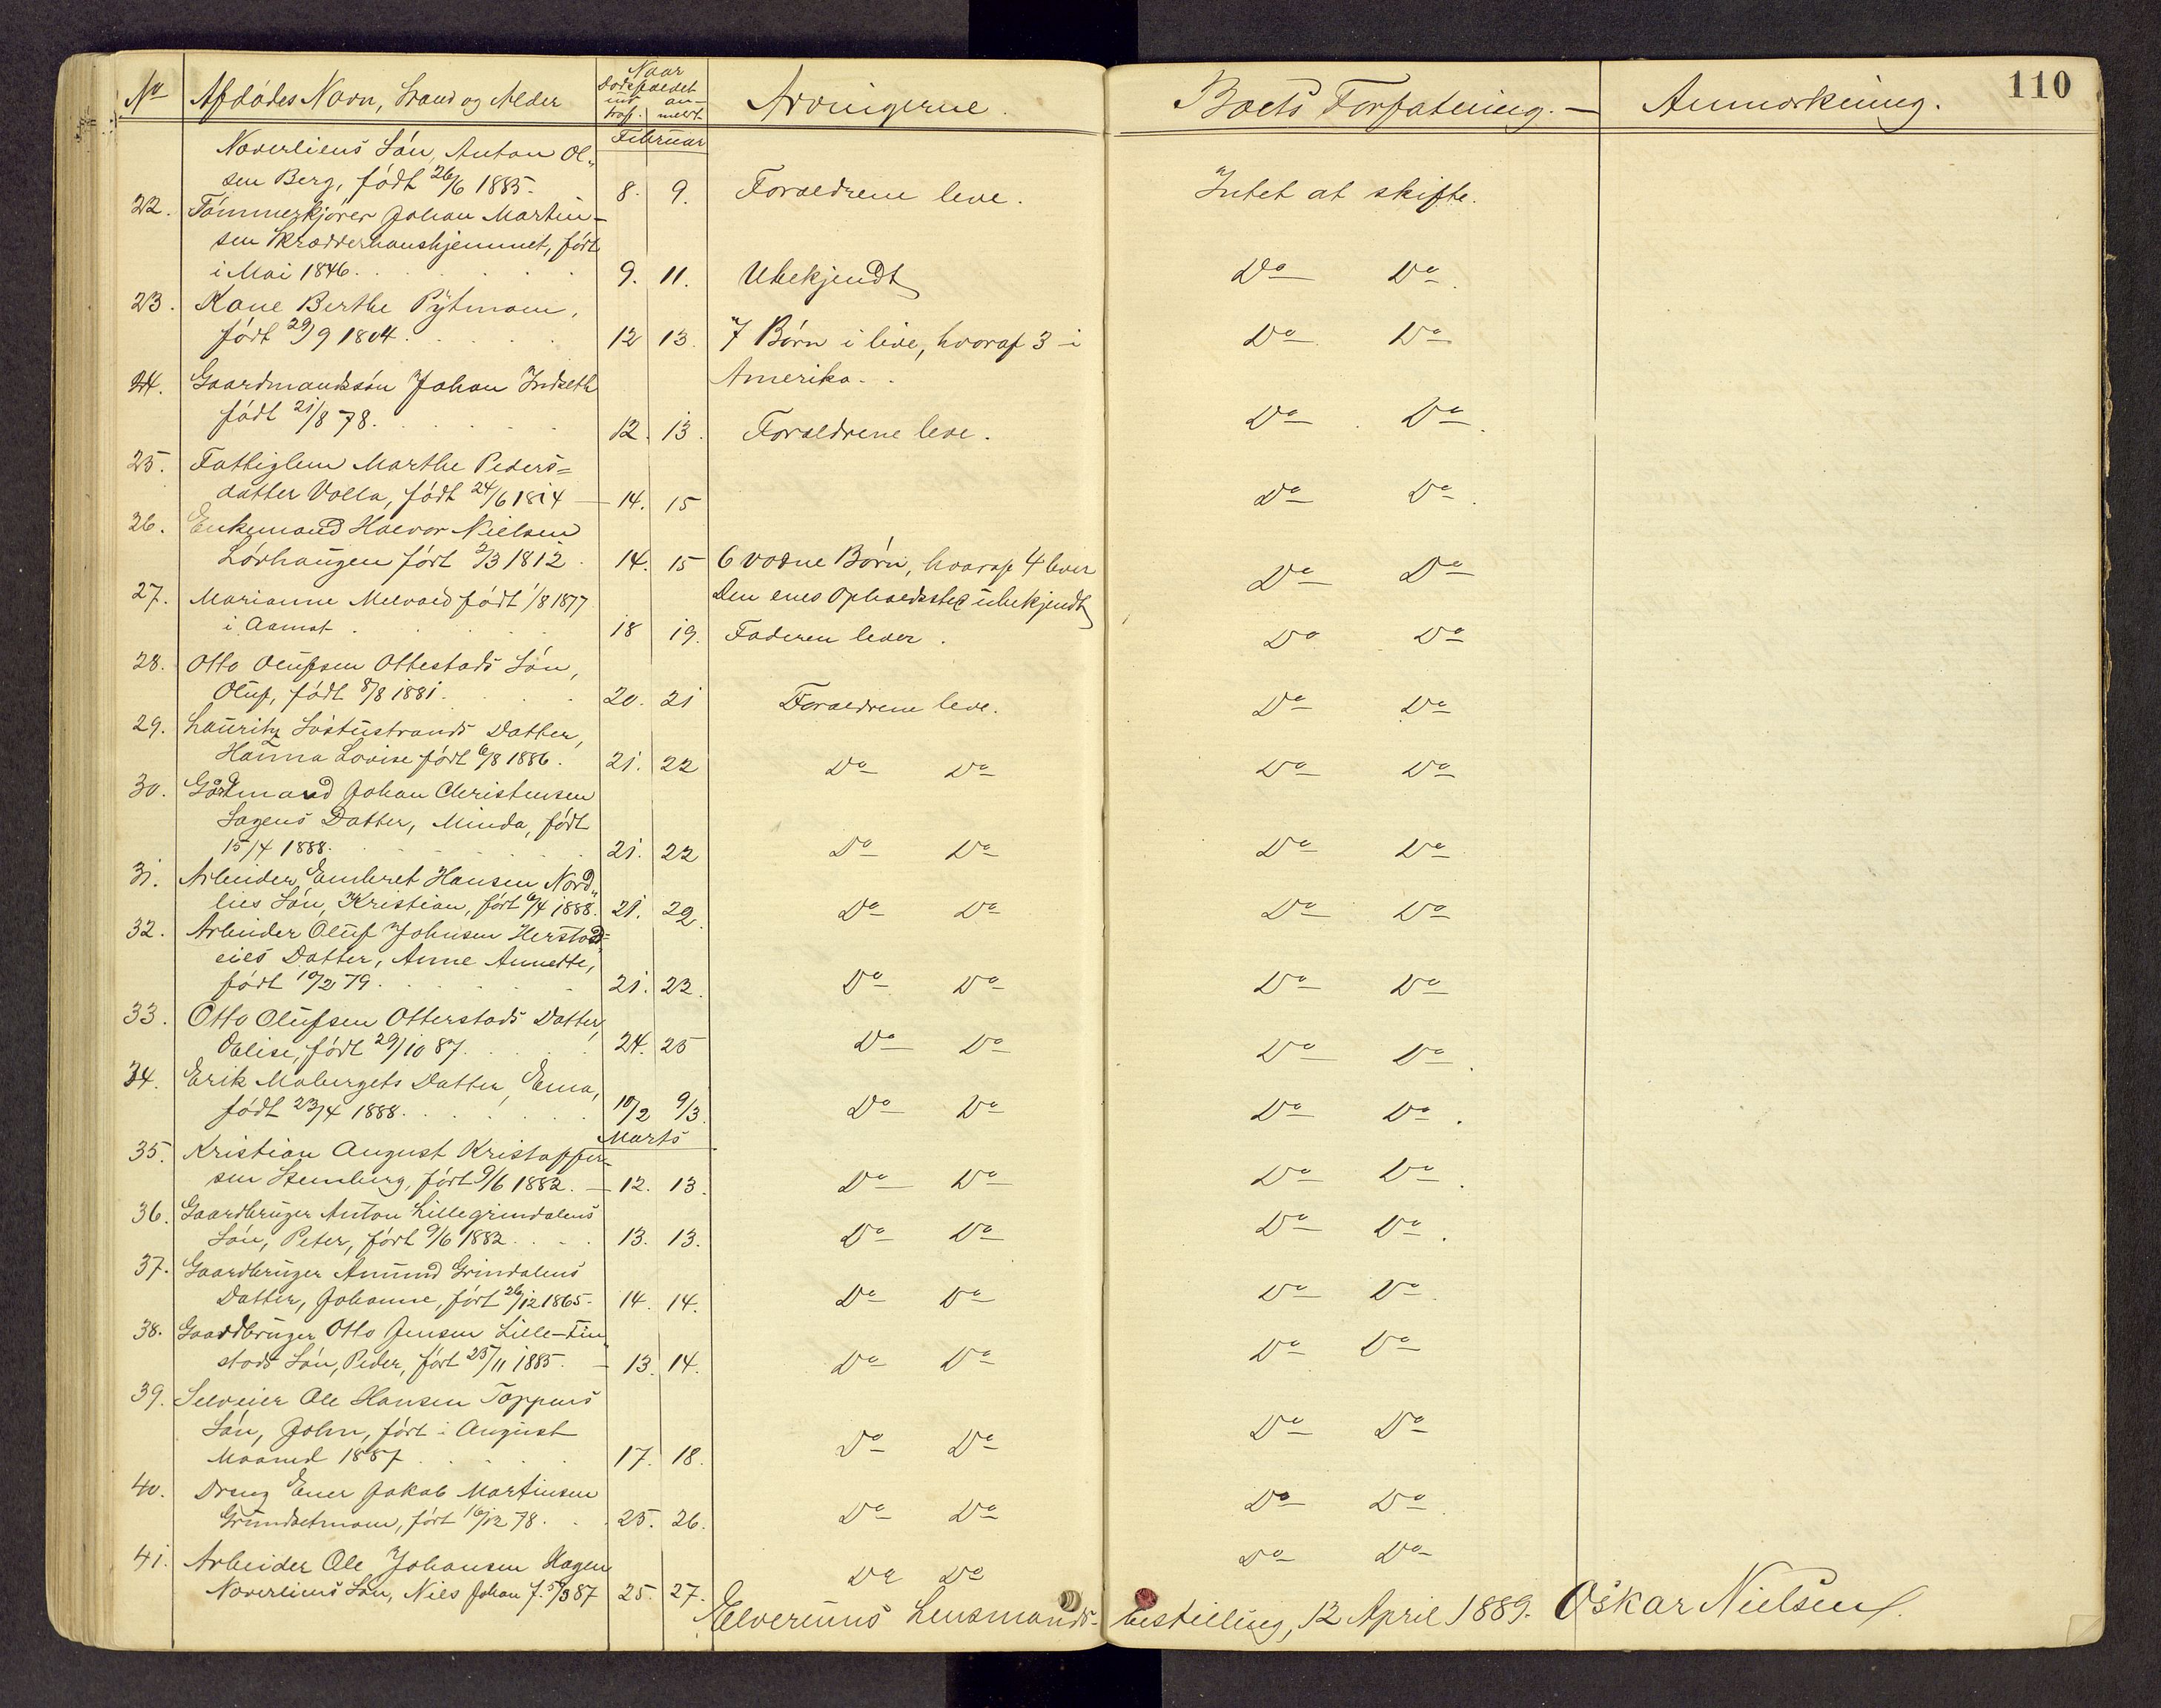 110
No Afdødes Navn, Stand og Alder Naar Dødsfaldet indtraf. anmeldt Arvingerne. Boets Forfatning. — Anmærkning.
Februar
Noverliens Søn, Anton Ol„
sen Berg, født 26/6 1885. 8. 9. Forældrene leve. Intet at skifte.
22. Tømmerkjører Johan Martin-
sen Skrædderhaushjemmet, født
i Mai 1846. 9. 11. Ubekjendt Do Do.
23. Kone Berthe Pytmoen,
født 29/9 1804. 12 13. 7 Børn i live, hvoraf 3 i Do Do
Amerika.
24. Gaardmandssøn Johan Indseth
født 21/8 78. 12. 13. Forældrene leve. Do Do.
25. Fattiglem Marthe Peders=
datter Volla, født 24/6 1814 — 14. 15 Do Do.
26. Enkemand Halvor Nielsen
Lørhaugen født 2/3 1812. 14. 15 6 voxne Børn, hvoraf 4 lever Do Do
Den enes Opholdssted ubekjendt
27. Marianne Melvold født 1/8 1877
i Aamot. 18 19. Faderen lever. Do Do
28. Otto Olufsen Ottestads Søn,
Oluf, født 8/8 1881. 20. 21 Forældrene leve. Do Do
29. Lauritz Søstustrands Datter,
Hanna Lovise født 6/8 1886. 21. 22 Do Do Do Do
30. Gårdmand Johan Christensen
Sagens Datter, Minda, født
15/4 1888. 21. 22 Do Do Do Do
31. Arbeider Embret Hansen Nord„
lies Søn, Kristian, født 6/4 1888. 21. 22. Do Do Do Do
32. Arbeider Oluf Johnsen Herstad=
eies Datter, Anne Annette,
født 10/2 79. 21. 22. Do Do Do Do
33. Otto Olufsen Otterstads Datter,
Oelise, født 29/10 87. 24. 25 Do Do Do Do.
34. Erik Mobergets Datter, Ema,
født 23/4 1888. 10/2 9/3. Do Do Do Do.
Marts
35. Kristian August Kristoffer-
sen Stemberg, født 9/6 1882. — 12. 13. Do Do Do Do.
36. Gaardbruger Anton Lillegrindalens
Søn, Peter, født 9/6 1882. 13. 13. Do Do Do Do.
37. Gaardbruger Amund Grindalens
Datter, Johanne, født 26/12 1865. 14. 14. Do Do Do Do.
38. Gaardbruger Otto Jensen Lille-Fin„
stads Søn, Peder, født 25/11 1885. — 13. 14. Do Do Do Do
39. Selveier Ole Hansen Toppens
Søn, John, født i August
Maaned 1887. 17. 18. Do Do Do Do
40. Dreng Ener Jakob Martinsen
Grundsetmoen, født 16/12 78. 25. 26. Do Do Do Do.
41. Arbeider Ole Johansen Hagen
Noverliens Søn, Niels Johan f. 5/3 87 25. 27. Do Do Do Do
Elverums Lensmands-bestilling, 12 April 1889. Oskar Nielsen.